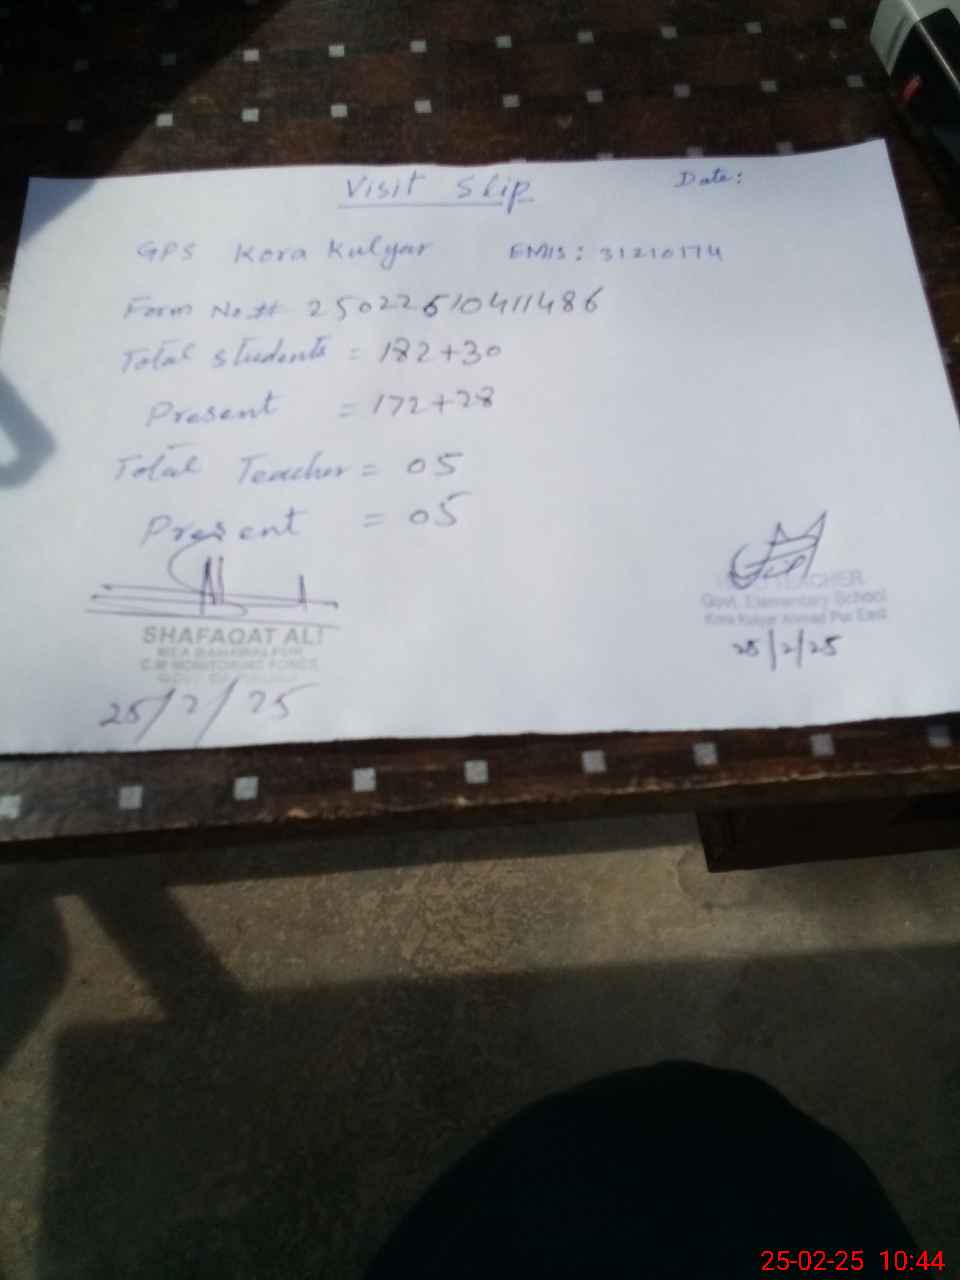 Visit Slip
Date:
GPS Kora Kulyar EMIS: 31210174
Form No.# 25022510411486
Total students = 182+30
Present = 172+28
Total Teacher = 05
Present = 05
SHAFAQAT ALI
MEA BAHAWALPUR
C.M MONITORING FORCE
25/2/25
TEACHER
Govt. Elementary School
Kora Kulyar Ahmad Pur East
25/2/25
25-02-25 10:44